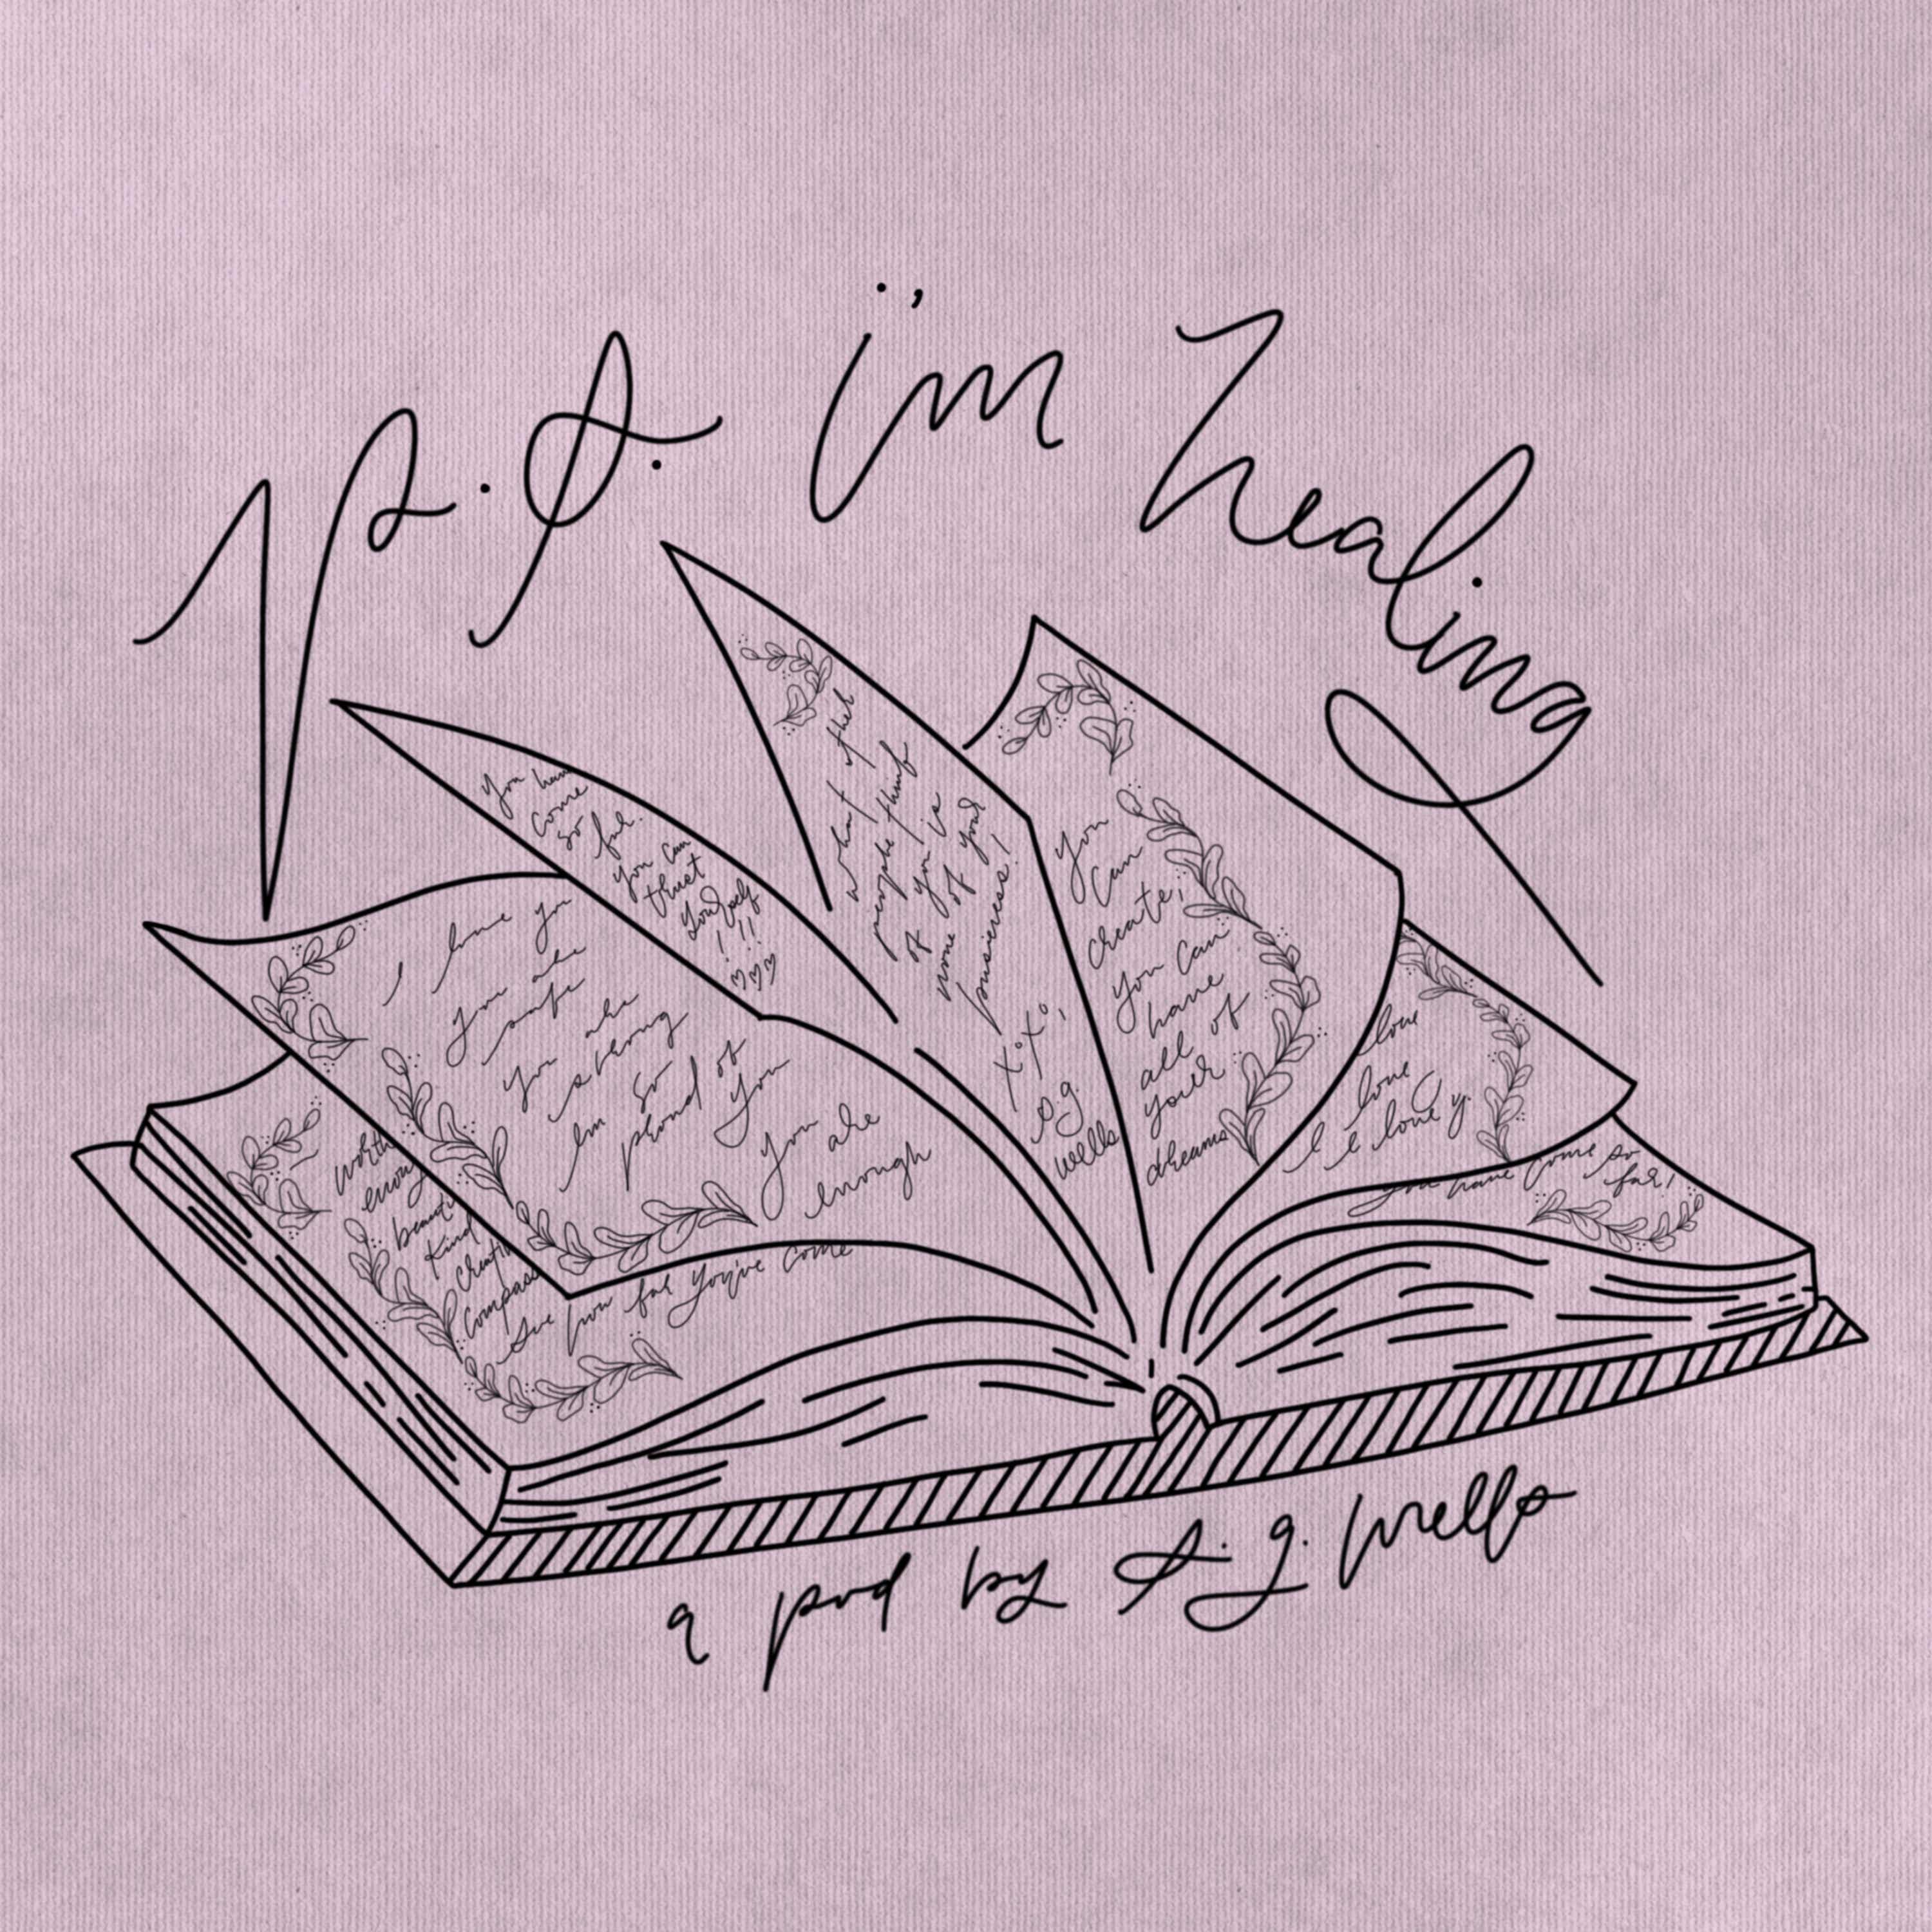 p.s. i'm healing
you have
come
so far.
you can
trust
yourself
!!!
what other
people think
of you is
none of your
business!
x.x.,
s.g.
wells
you
can
create,
you can
have
all of
your
dreams
I love you
you are
safe
you are
strong
so
proud of
you
you are
enough
love
I love
I love y.
you have come so
far,
worth
enoug
beauti
kind
creativ
compass
see how far you've come
a pod by s.g. wells